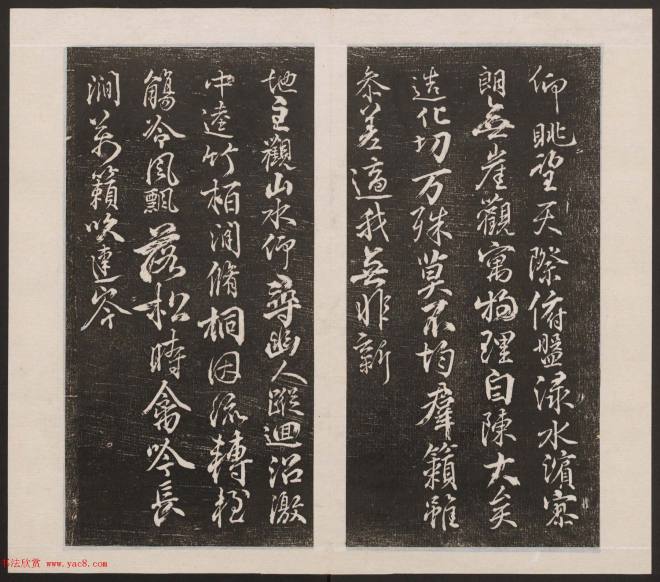 仰眺望天際俯盤渌水濱寥
朗無崖觀寓物理自陳大矣
造化切万殊莫不均羣籟雖
參差適我無非新
地主觀山水仰尋幽人蹤迴沼激
中逵竹栢間脩桐因流轉輕
觴冷風飄落松時禽吟長
澗萬籟吹連岑
书法欣赏 www.yac8.com